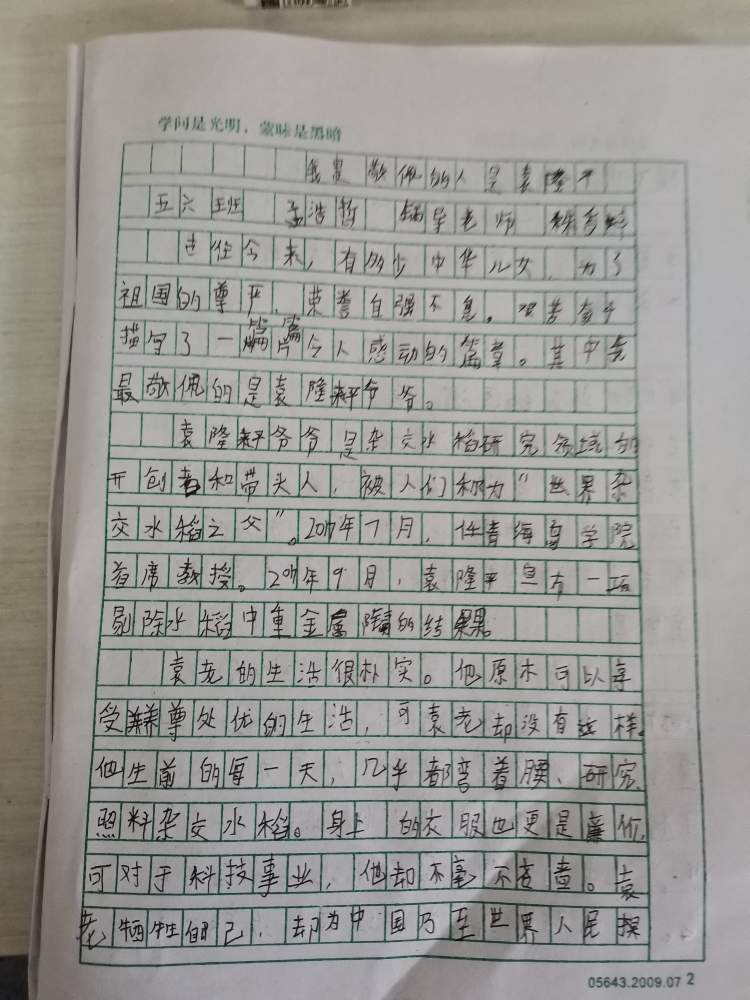 学问是光明，蒙昧是黑暗
我最敬佩的人是袁隆平
五六班 孟浩哲 辅导老师
古往今来，有的少中华儿女，为了
祖国的尊严、荣誉自强不息。艰苦奋斗
描写了一篇篇令人感动的篇章。其中我
最敬佩的是袁隆平爷爷。
袁隆平爷爷是杂交水稻研究领域的
开创者和带头人，被人们称为"世界杂
交水稻之父"。2017年7月，任青海大学院
首席教授。2017年9月，袁隆平宣布一项
剔除水稻中重金属隔的结果。
袁老的生活很朴实。他原本可以享
受养尊处优的生活，可袁老却没有这样。
他生前的每一天，几乎都弯着腰、研究、
照料杂交水稻。身上的衣服也更是廉价，
可对于科技事业，他却不毫不吝啬。袁
老牺牲自己，却为中国乃至世界人民提
05643.2009.07 2